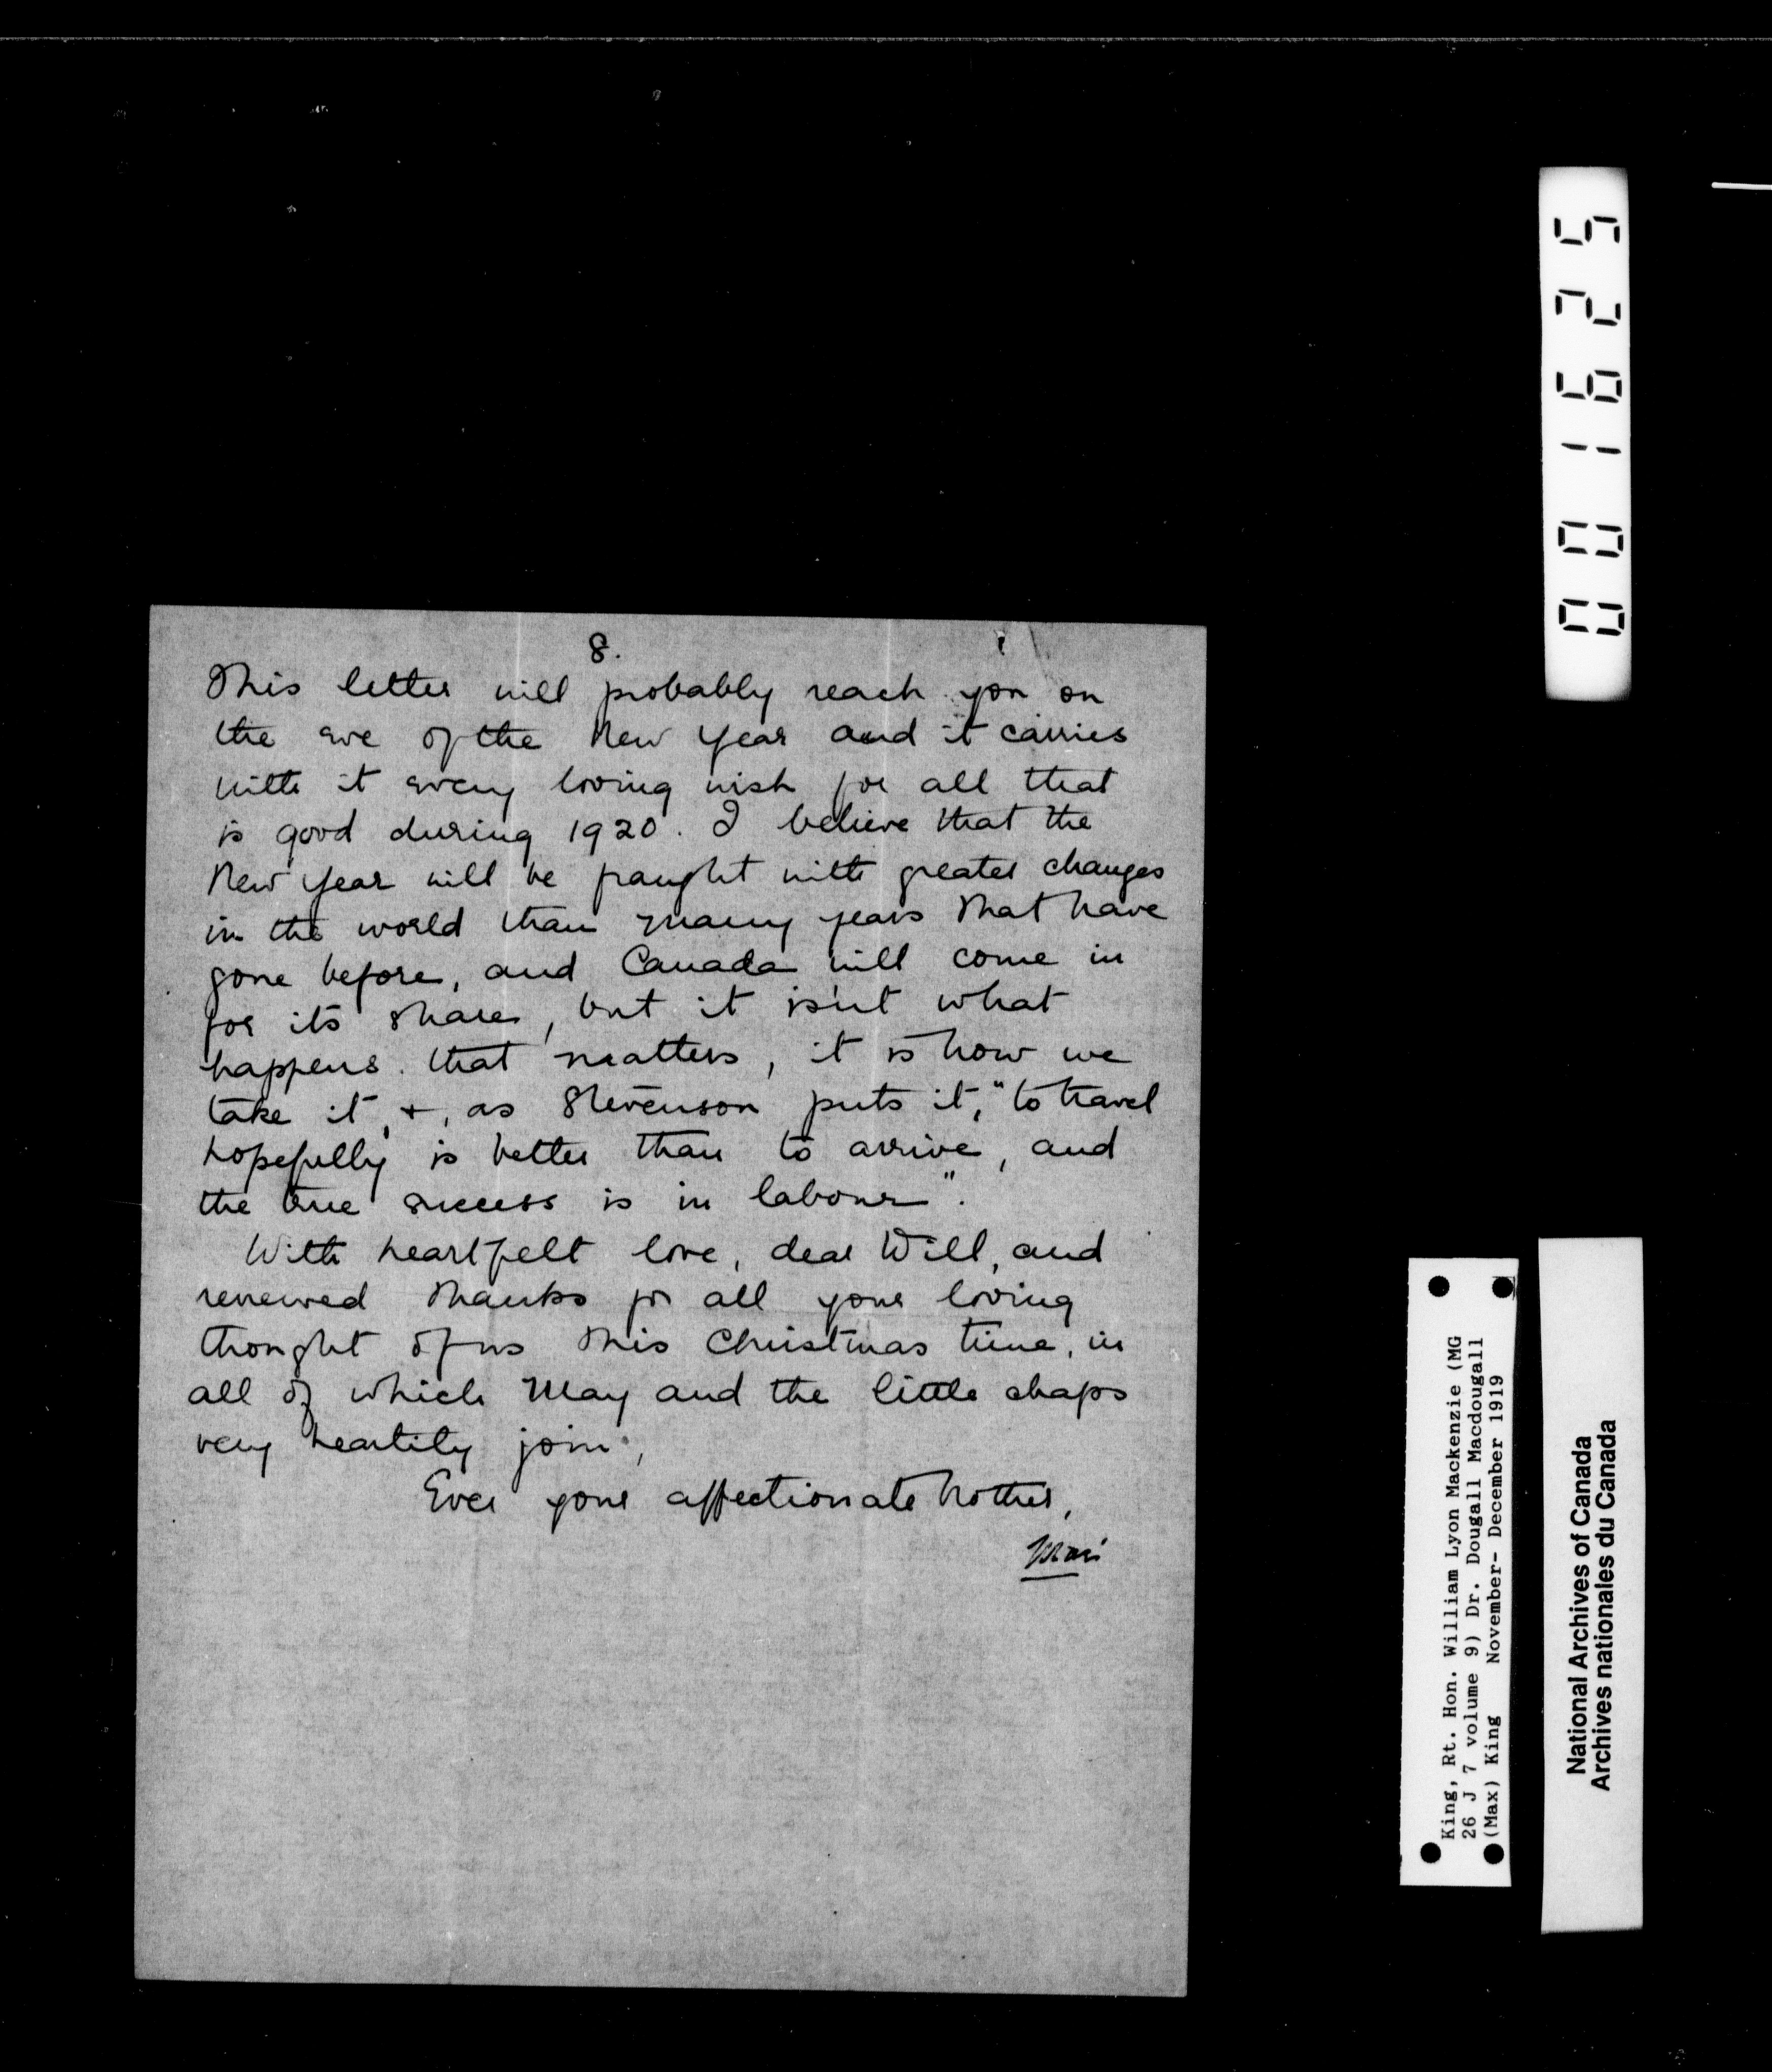 8.
This letter will probably reach you on
the eve of the New Year and it carries
with it every loving wish for all that
is good during 1920. I believe that the
New Year will be fraught with greater changes
in the world than many years that have
gone before, and Canada will come in
for its share, but it isn't what
happens that matters, it is how we
take it, +, as Stevenson puts it, "to travel
hopefully is better than to arrive, and
the true success is in labour".
With heartfelt love, dear Will, and
renewed thanks for all your loving
thought of us this Christmas time, in
all of which May and the little chaps
very heartily join,
Ever your affectionate brother,
Max
001625
King, Rt. Hon. William Lyon Mackenzie (MG
26 J 7 volume 9) Dr. Dougall Macdougall
(Max) King November- December 1919
National Archives of Canada
Archives nationales du Canada